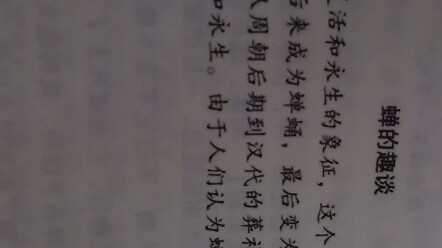 蝉的趣谈
活和永生的象征，这个
后来成为蝉蛹，最后变为
周朝后期到汉代的葬
和永生。由于人们认为